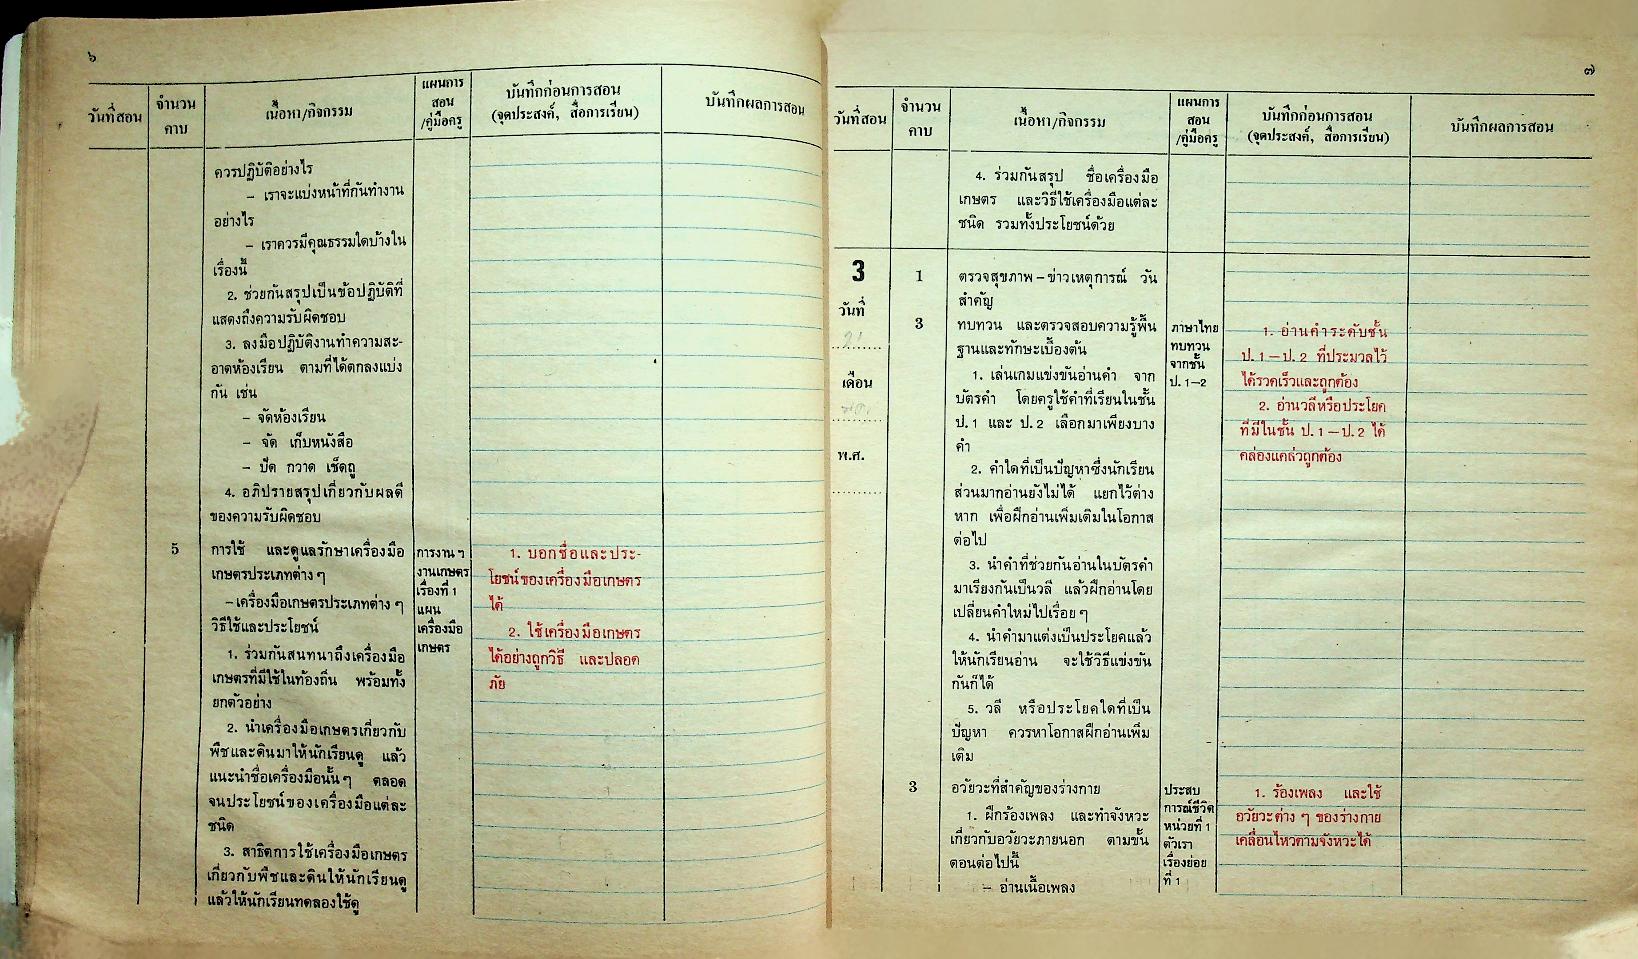 ๖
วันที่สอน
จำนวน
คาบ
เนื้อหา/กิจกรรม
แผนการ
สอน
/คู่มือครู
บันทึกก่อนการสอน
(จุดประสงค์, สื่อการเรียน)
บันทึกผลการสอน
ควรปฏิบัติอย่างไร
– เราจะแบ่งหน้าที่กันทำงาน
อย่างไร
– เราควรมีคุณธรรมใดบ้างใน
เรื่องนี้
2. ช่วยกันสรุปเป็นข้อปฏิบัติที่
แสดงถึงความรับผิดชอบ
3. ลงมือปฏิบัติงานทำความสะ-
อาดห้องเรียน ตามที่ได้ตกลงแบ่ง
กัน เช่น
– จัดห้องเรียน
– จัด เก็บหนังสือ
– ปัด กวาด เช็ดถู
4. อภิปรายสรุปเกี่ยวกับผลดี
ของความรับผิดชอบ
5
การใช้ และดูแลรักษาเครื่องมือ
เกษตรประเภทต่าง ๆ
– เครื่องมือเกษตรประเภทต่าง ๆ
วิธีใช้และประโยชน์
1. ร่วมกันสนทนาถึงเครื่องมือ
เกษตรที่มีใช้ในท้องถิ่น พร้อมทั้ง
ยกตัวอย่าง
2. นำเครื่องมือเกษตรเกี่ยวกับ
พืชและดินมาให้นักเรียนดู แล้ว
แนะนำชื่อเครื่องมือนั้น ๆ ตลอด
จนประโยชน์ของเครื่องมือแต่ละ
ชนิด
3. สาธิตการใช้เครื่องมือเกษตร
เกี่ยวกับพืชและดินให้นักเรียนดู
แล้วให้นักเรียนทดลองใช้ดู
การงาน ๆ
งานเกษตร
เรื่องที่ 1
แผน
เครื่องมือ
เกษตร
1. บอกชื่อและประ-
โยชน์ของเครื่องมือเกษตร
ได้
2. ใช้เครื่องมือเกษตร
ได้อย่างถูกวิธี และปลอด
ภัย
๗
วันที่สอน
จำนวน
คาบ
เนื้อหา/กิจกรรม
แผนการ
สอน
/คู่มือครู
บันทึกก่อนการสอน
(จุดประสงค์, สื่อการเรียน)
บันทึกผลการสอน
4. ร่วมกันสรุป ชื่อเครื่องมือ
เกษตร และวิธีใช้เครื่องมือแต่ละ
ชนิด รวมทั้งประโยชน์ด้วย
3
วันที่
21
เดือน
พ.ศ.
1
ตรวจสุขภาพ – ข่าวเหตุการณ์ วัน
สำคัญ
3
ทบทวน และตรวจสอบความรู้พื้น
ฐานและทักษะเบื้องต้น
1. เล่นเกมแข่งขันอ่านคำ จาก
บัตรคำ โดยครูใช้คำที่เรียนในชั้น
ป. 1 และ ป. 2 เลือกมาเพียงบาง
คำ
2. คำใดที่เป็นปัญหาซึ่งนักเรียน
ส่วนมากอ่านยังไม่ได้ แยกไว้ต่าง
หาก เพื่อฝึกอ่านเพิ่มเติมในโอกาส
ต่อไป
3. นำคำที่ช่วยกันอ่านในบัตรคำ
มาเรียงกันเป็นวลี แล้วฝึกอ่านโดย
เปลี่ยนคำใหม่ไปเรื่อย ๆ
4. นำคำมาแต่งเป็นประโยคแล้ว
ให้นักเรียนอ่าน จะใช้วิธีแข่งขัน
กันก็ได้
5. วลี หรือประโยคใดที่เป็น
ปัญหา ควรหาโอกาสฝึกอ่านเพิ่ม
เติม
ภาษาไทย
ทบทวน
จากชั้น
ป. 1–2
1. อ่านคำระดับชั้น
ป. 1 – ป. 2 ที่ประมวลไว้
ได้รวดเร็วและถูกต้อง
2. อ่านวลีหรือประโยค
ที่มีในชั้น ป. 1 – ป. 2 ได้
คล่องแคล่วถูกต้อง
3
อวัยวะที่สำคัญของร่างกาย
1. ฝึกร้องเพลง และทำจังหวะ
เกี่ยวกับอวัยวะภายนอก ตามขั้น
ตอนต่อไปนี้
– อ่านเนื้อเพลง
ประสบ
การณ์ชีวิต
หน่วยที่ 1
ตัวเรา
เรื่องย่อย
ที่ 1
1. ร้องเพลง และใช้
อวัยวะต่าง ๆ ของร่างกาย
เคลื่อนไหวตามจังหวะได้